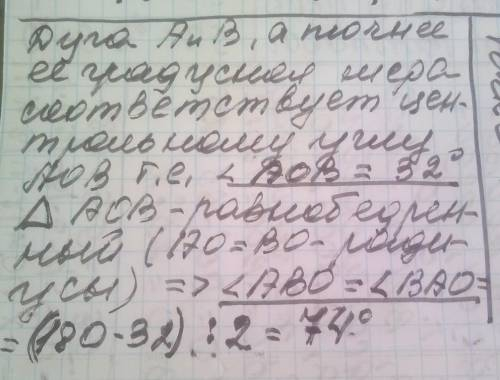 Дуга АnВ, а точнее
ее градусная мера
соответствует цен-
тральному углу
АОВ т.е. ∠АОВ = 32°
Δ АОВ - равнобедрен-
ный (АО = ВО - ради-
усы) => ∠АВО = ∠ВАО =
= (180 - 32) : 2 = 74°